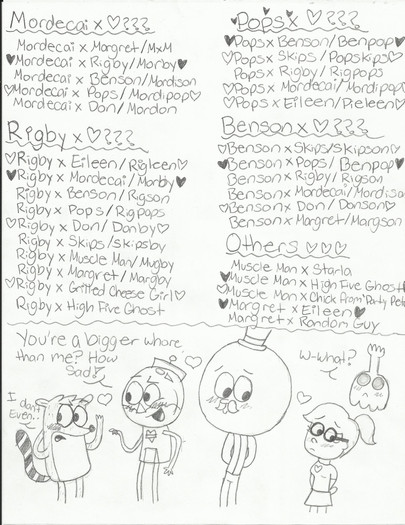 Mordecai x ♡???
Mordecai x Margret/MxM
♥Mordecai x Rigby/Morby♥
Mordecai x Benson/Mordison
♡Mordecai x Pops/Mordipop♡
Mordecai x Don/Mordon
Rigby x ♡???
♡Rigby x Eileen/Rigleen♡
♥Rigby x Mordecai/Morby♥
Rigby x Benson/Rigson
Rigby x Pops/Rigpops
♡Rigby x Don/Donby♡
Rigby x Skips/Skipsby
Rigby x Muscle Man/Mugby
Rigby x Margret/Margby
♡Rigby x Grilled Cheese Girl♡
Rigby x High Five Ghost
Pops x ♡???
♥Pops x Benson/Benpop♥
♡Pops x Skips/Popskips♡
Pops x Rigby/Rigpops
♡Pops x Mordecai/Mordipop
♡Pops x Eileen/Pieleen♡
Benson x ♡???
♡Benson x Skips/Skipson♡
♥Benson x Pops/Benpop♥
Benson x Rigby/Rigson
Benson x Mordecai/Mordiso
♡Benson x Don/Donson♡
Benson x Margret/Margson
Others ♡♡♡
Muscle Man x Starla
♥Muscle Man x High Five Ghost
♡Muscle Man x Chick From Party Pete
♥Margret x Eileen♥
Margret x Random Guy
You're a bigger whore
than me? How
Sad?
I don't
Even..
W-what?